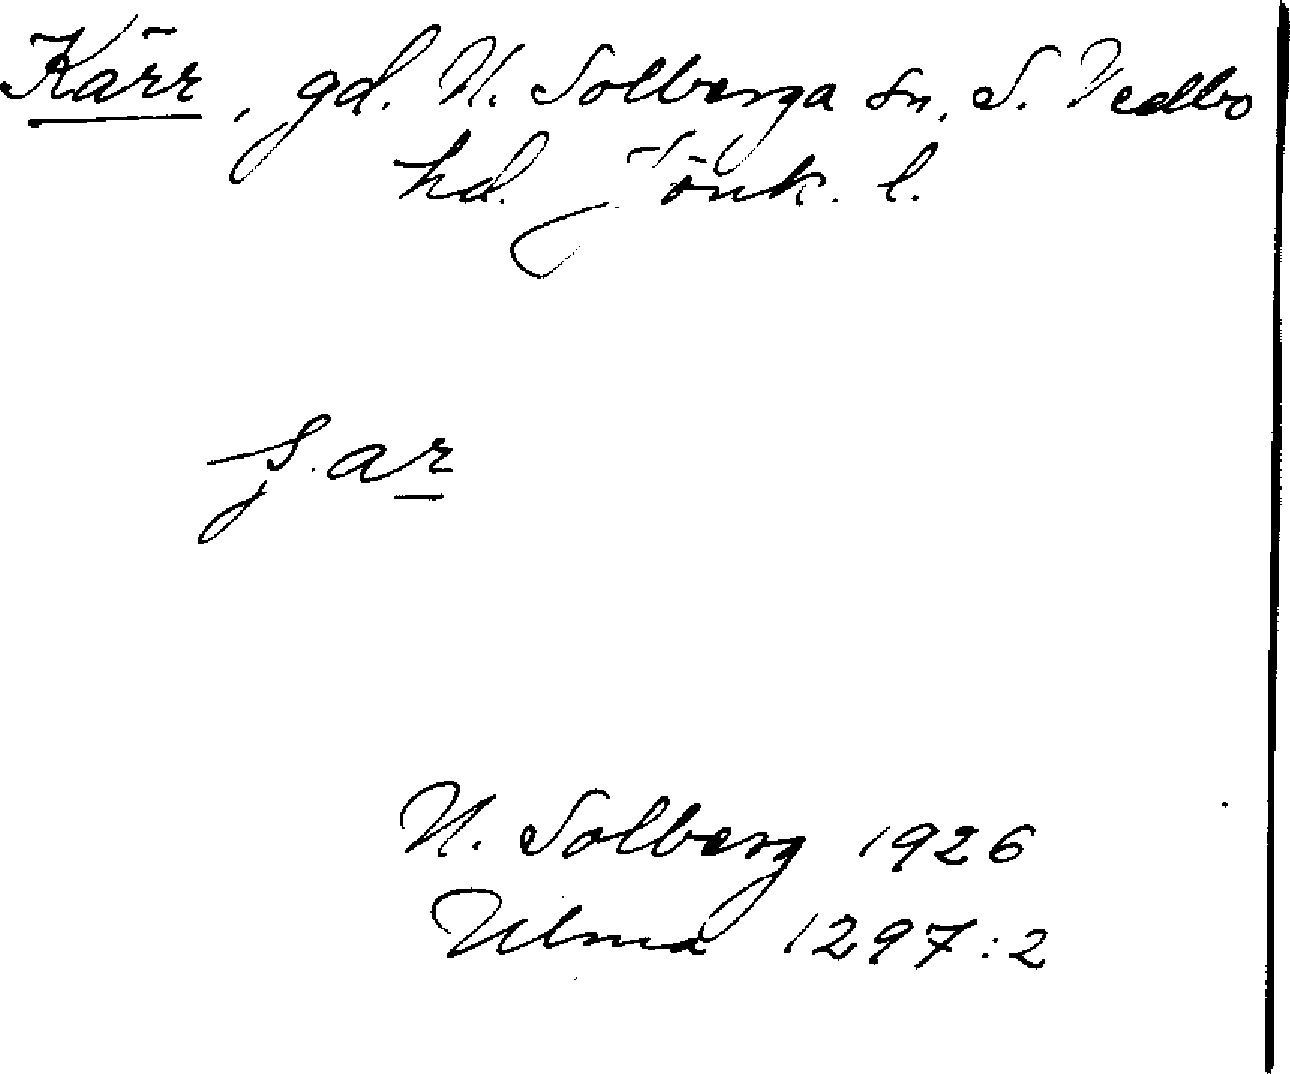 Kärr, gd. N. Solberga sn, S. Vedbo
hd. Jönk. l.
N. Solberg 1926
Ulma 1297:2